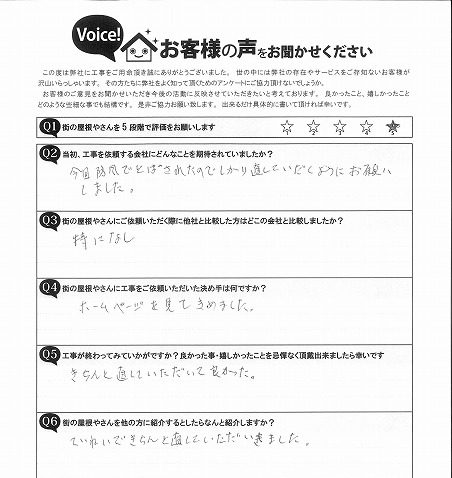 Voice!
お客様の声をお聞かせください
この度は弊社に工事をご用命頂き誠にありがとうございました。 世の中には弊社の存在やサービスをご存知ないお客様が
沢山いらっしゃいます。 その方たちに弊社をよく知って頂くためのアンケートにご協力頂けないでしょうか。
お客様のご意見をお聞かせいただき今後の活動に反映させていただきたいと考えております。 良かったこと、嬉しかったこと
どのような些細な事でも結構です。 是非ご協力お願い致します。 出来るだけ具体的に書いて頂ければ幸いです。
Q1 街の屋根やさんを5段階で評価をお願いします
1 2 3 4 5
Q2 当初、工事を依頼する会社にどんなことを期待されていましたか?
今回 防風でとばされたのでしかり直していただくようにお願い
しました。
Q3 街の屋根やさんにご依頼いただく際に他社と比較した方はどこの会社と比較しましたか?
特になし
Q4 街の屋根やさんに工事をご依頼いただいた決め手は何ですか?
ホームページを見てきめました。
Q5 工事が終わってみていかがですか?良かった事・嬉しかったことを忌憚なく頂戴出来ましたら幸いです
きちんと直していただいて良かった。
Q6 街の屋根やさんを他の方に紹介するとしたらなんと紹介しますか?
ていねいできちんと直していただきました。